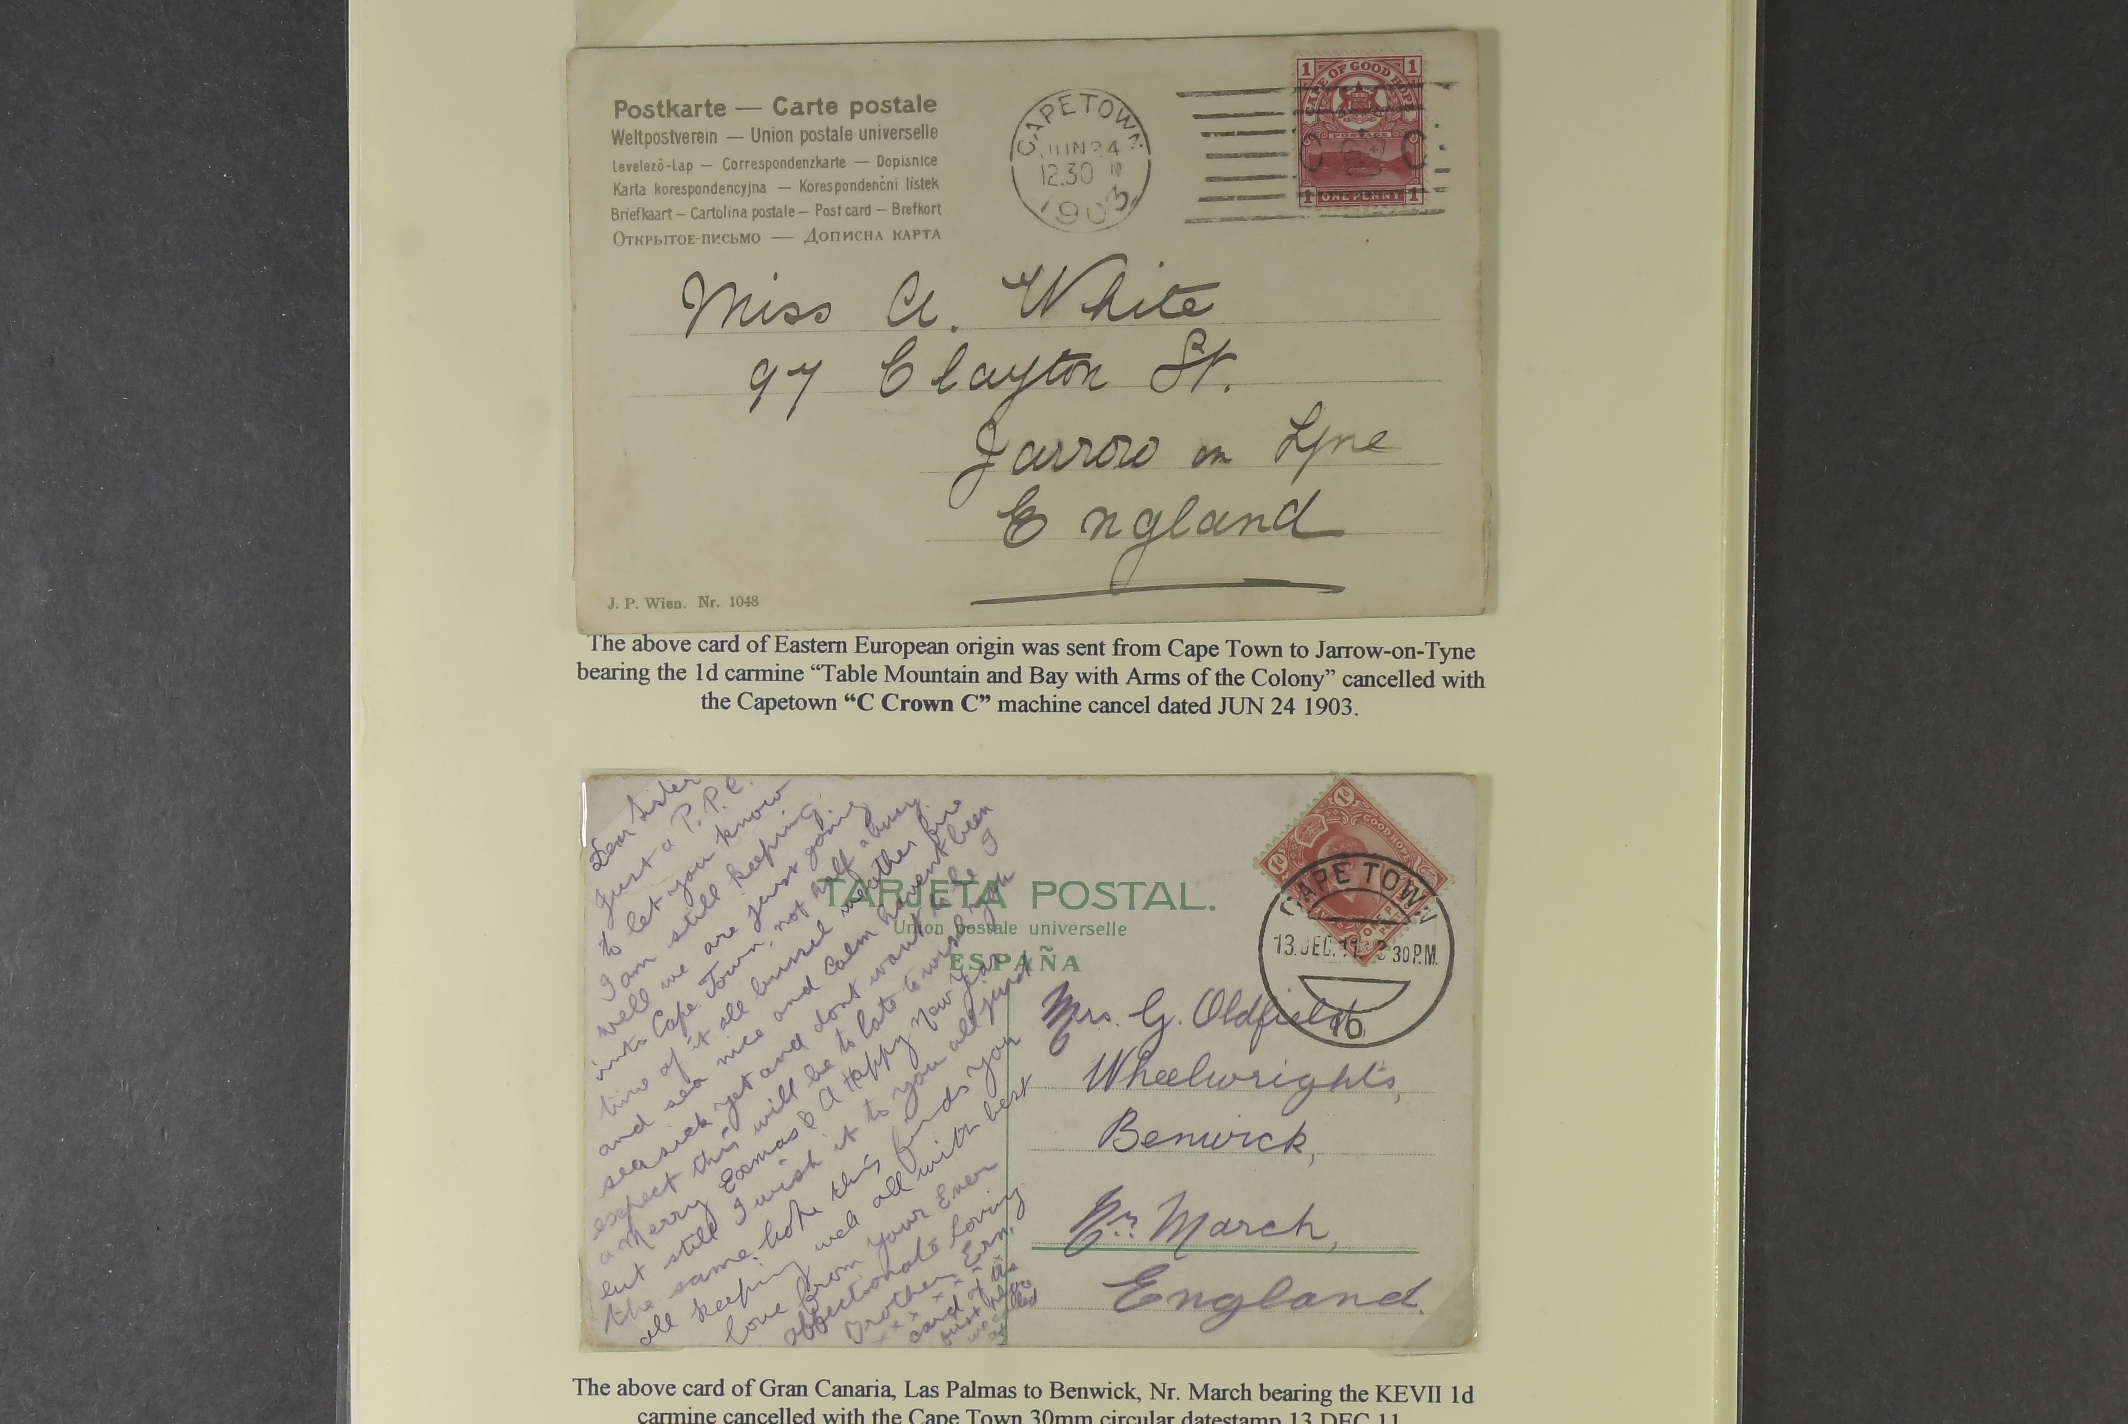 Postkarte — Carte postale
Weltpostverein — Union postale universelle
Levelező-Lap — Correspondenzkarte — Dopisnice
Karta korespondencyjna — Korespondenční lístek
Briefkaart — Cartolina postale — Post card — Brefkort
Открытое-письмо — Дописна карта
CAPETOWN
JUN 24
12.30
1903
1 CAPE OF GOOD HOPE 1
POSTAGE
C C
1 ONE PENNY 1
Miss A. White
97 Clayton St.
Jarrow on Tyne
England
J. P. Wien. Nr. 1048
The above card of Eastern European origin was sent from Cape Town to Jarrow-on-Tyne
bearing the 1d carmine “Table Mountain and Bay with Arms of the Colony” cancelled with
the Capetown “C Crown C” machine cancel dated JUN 24 1903.
TARJETA POSTAL.
Union postale universelle
ESPAÑA
Dear Sister
Just a P.P.C.
to let you know
I am still keeping
well we are just going
into Cape Town, not half a busy
time of it all
and sea nice and calm havent been
seasick yet and dont want to be I
expect this will be to late to wish you
a Merry Exmas & A Happy New Year
but still I wish it to you all just
the same. hope this finds you
all keeping well all with best
love from your Ever
affectionate Loving
Brother Ern.
x x x x x x
card of the
first place
we called
at
1d GOOD HOPE
1d
CAPE TOWN
13.DEC.11. 3 30 P.M.
10
Mrs. G. Oldfield,
Wheelwrights,
Benwick,
Nr. March,
England.
The above card of Gran Canaria, Las Palmas to Benwick, Nr. March bearing the KEVII 1d
carmine cancelled with the Cape Town 30mm circular datestamp 13 DEC 11